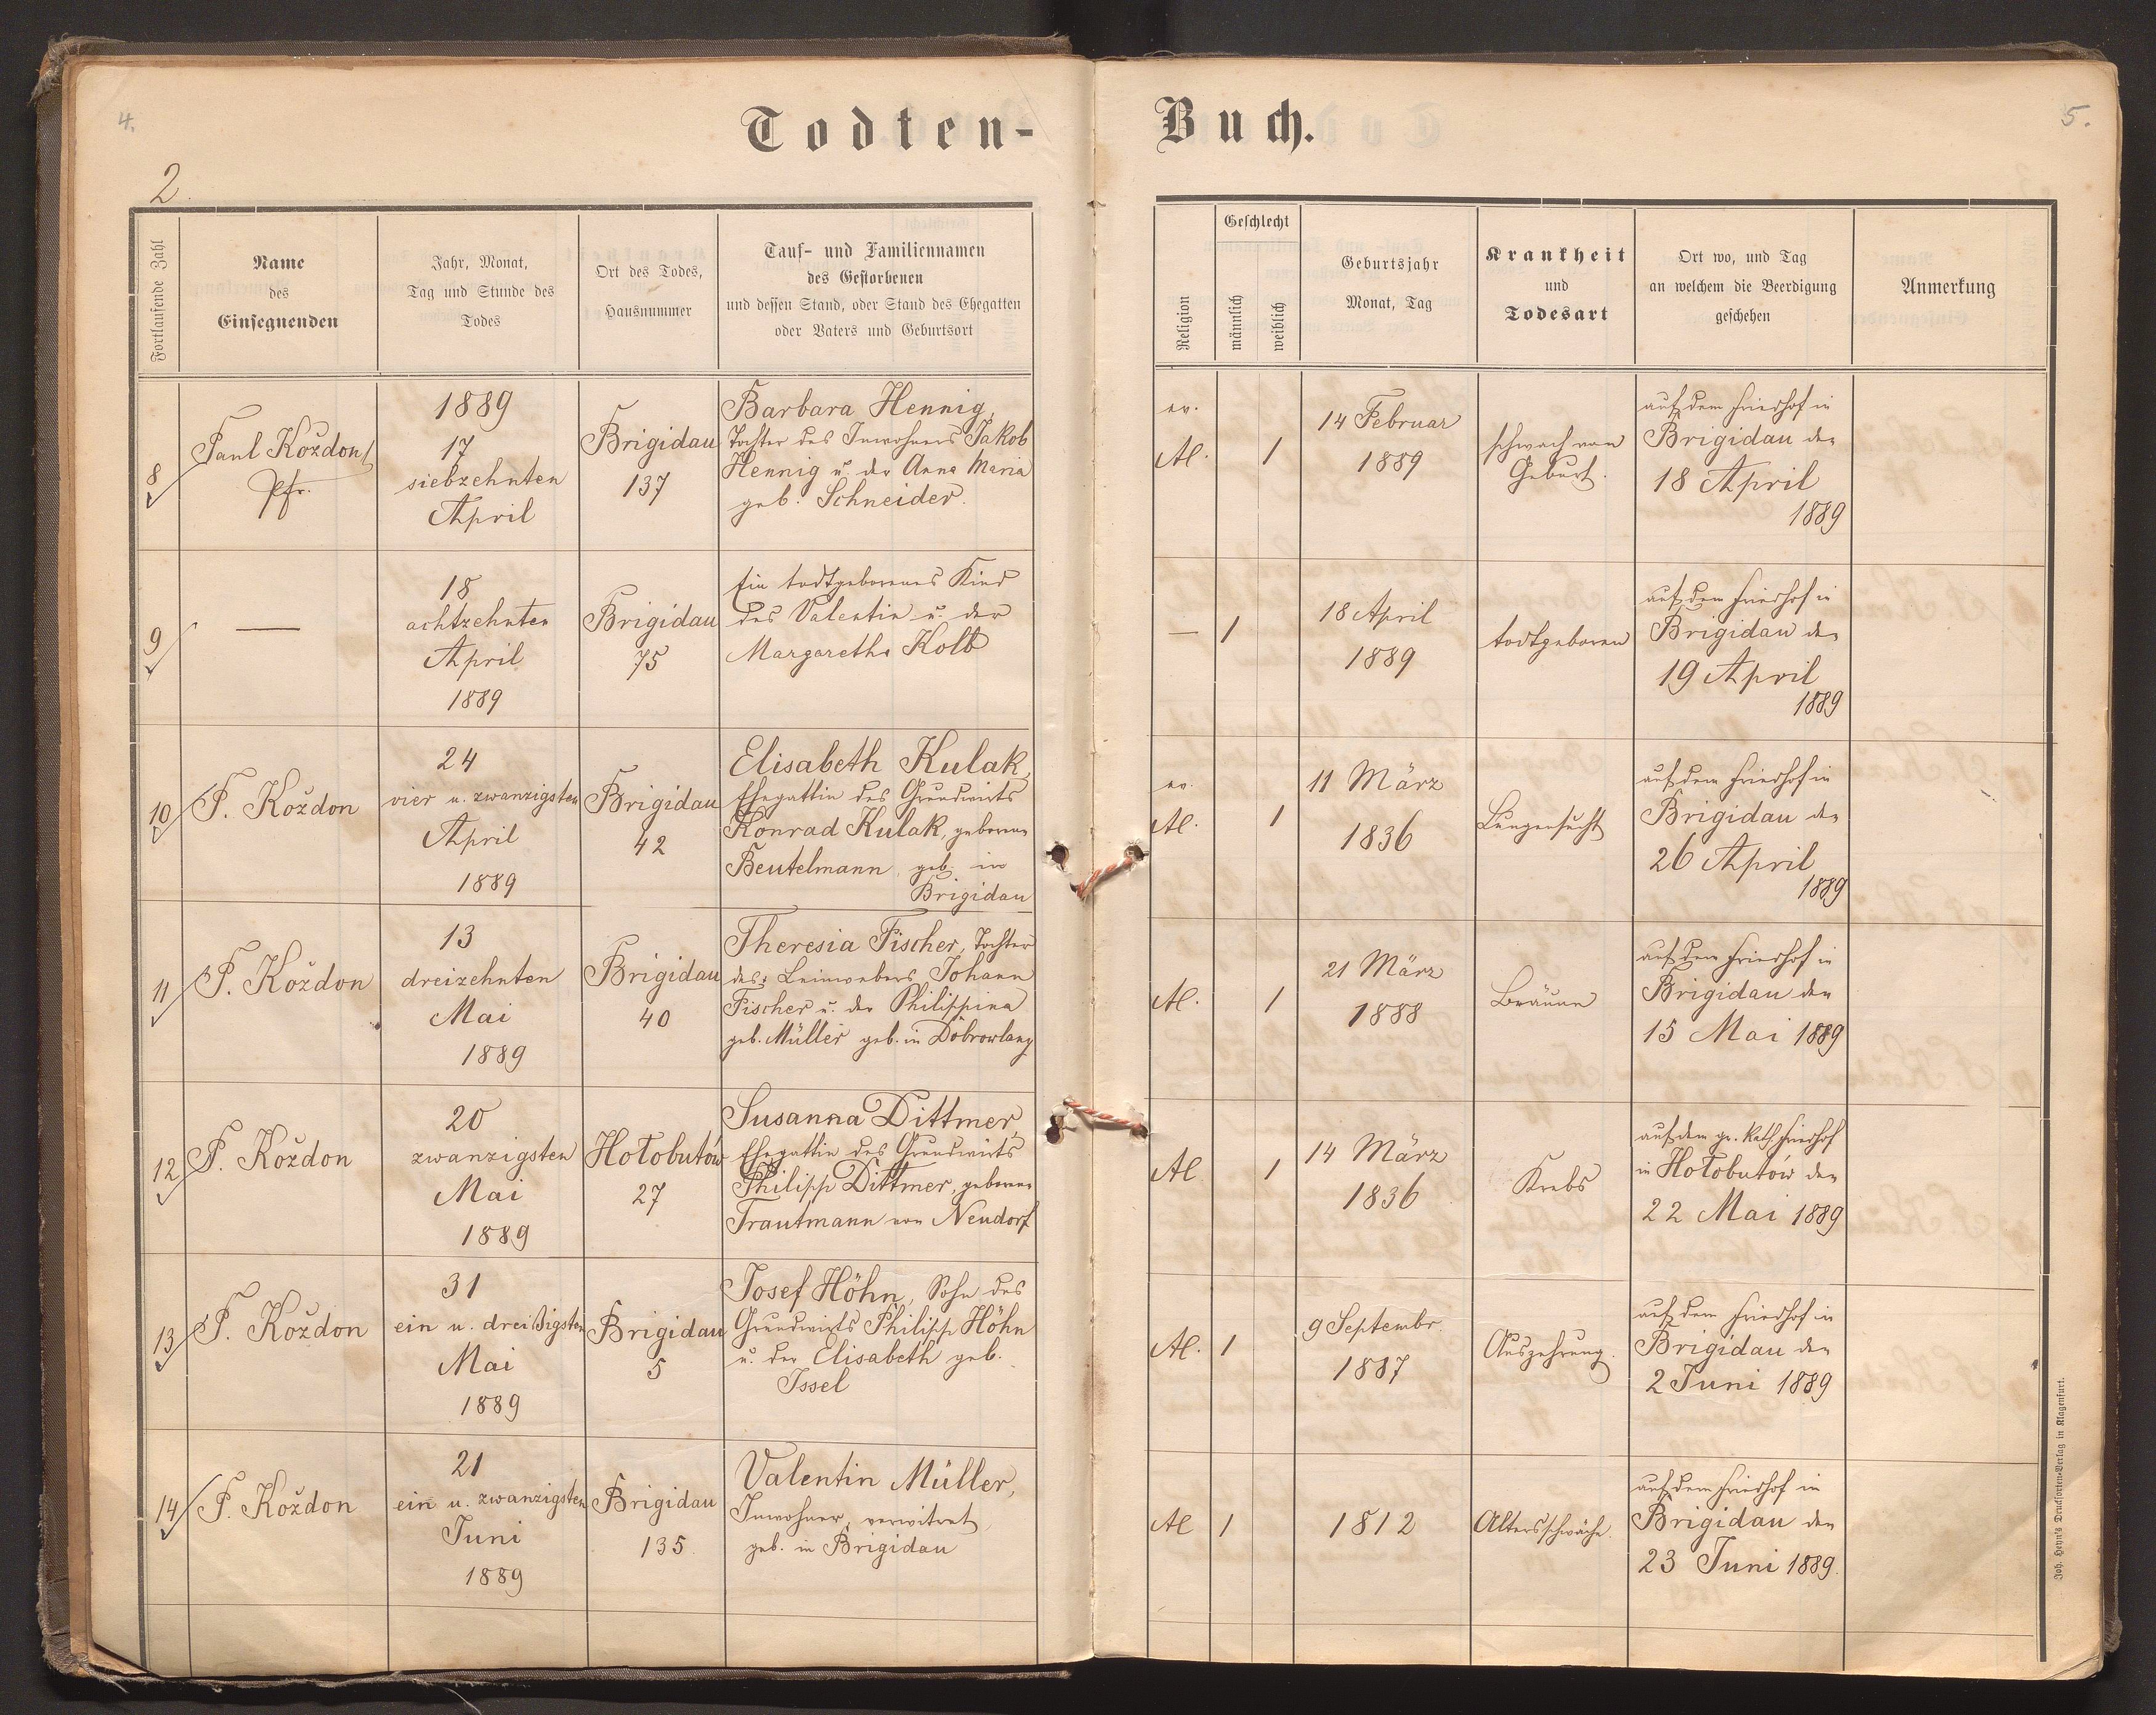 4.
Todten-
Buch.
5.
2
Fortlaufende Zahl
Name
des
Einsegnenden
Jahr, Monat,
Tag und Stunde des
Todes
Ort des Todes,
Hausnummer
Tauf- und Familiennamen
des Gestorbenen
und dessen Stand, oder Stand des Ehegatten
oder Vaters und Geburtsort
Religion
Geschlecht
männlich
weiblich
Geburtsjahr
Monat, Tag
Krankheit
und
Todesart
Ort wo, und Tag
an welchem die Beerdigung
geschehen
Anmerkung
8
Paul Koždon
Pfr.
1889
17
siebzehnten
April
Brigidau
137
Barbara Hennig,
Tochter des Inwohners Jakob
Hennig u. der Anna Maria
geb. Schneider.
ev.
AC.
1
14 Februar
1889
schwach von
Geburt.
auf dem Friedhof in
Brigidau den
18 April
1889
9
—
18
achtzehnten
April
1889
Brigidau
75
Ein todtgeborenes Kind
des Valentin u. der
Margaretha Kolb
—
1
18 April
1889
todtgeboren
auf dem Friedhof in
Brigidau den
19 April
1889
10
P. Koždon
24
vier u. zwanzigsten
April
1889
Brigidau
42
Elisabeth Kulak,
Ehegattin des Grundwirts
Konrad Kulak, geborene
Beutelmann, geb. in
Brigidau
ev.
AC.
1
11 März
1836
Lungensucht
auf dem Friedhof in
Brigidau den
26 April
1889
11
P. Koždon
13
dreizehnten
Mai
1889
Brigidau
40
Theresia Fischer, Tochter
des Leinwebers Johann
Fischer u. der Philippina
geb. Müller geb. in Dobrowlany
AC.
1
21 März
1888
Bräune
auf dem Friedhof in
Brigidau den
15 Mai 1889
12
P. Koždon
20
zwanzigsten
Mai
1889
Hołobutów
27
Susanna Dittmer,
Ehegattin des Grundwirts
Philipp Dittmer, geborene
Trautmann von Neudorf
AC
1
14 März
1836
Krebs
auf dem gr. kath. Friedhof
in Hołobutów den
22 Mai 1889
13
P. Koždon
31
ein u. dreißigsten
Mai
1889
Brigidau
5
Josef Höhn, Sohn des
Grundwirts Philipp Höhn
u. der Elisabeth geb.
Issel
AC.
1
9 Septembr.
1887
Auszehrung.
auf dem Friedhof in
Brigidau den
2 Juni 1889
14
P. Koždon
21
ein u. zwanzigsten
Juni
1889
Brigidau
135
Valentin Müller,
Inwohner, verwitwet,
geb. in Brigidau
AC
1
1812
Altersschwäche.
auf dem Friedhof in
Brigidau den
23 Juni 1889.
Joh. Heyn's Drucksorten-Verlag in Klagenfurt.